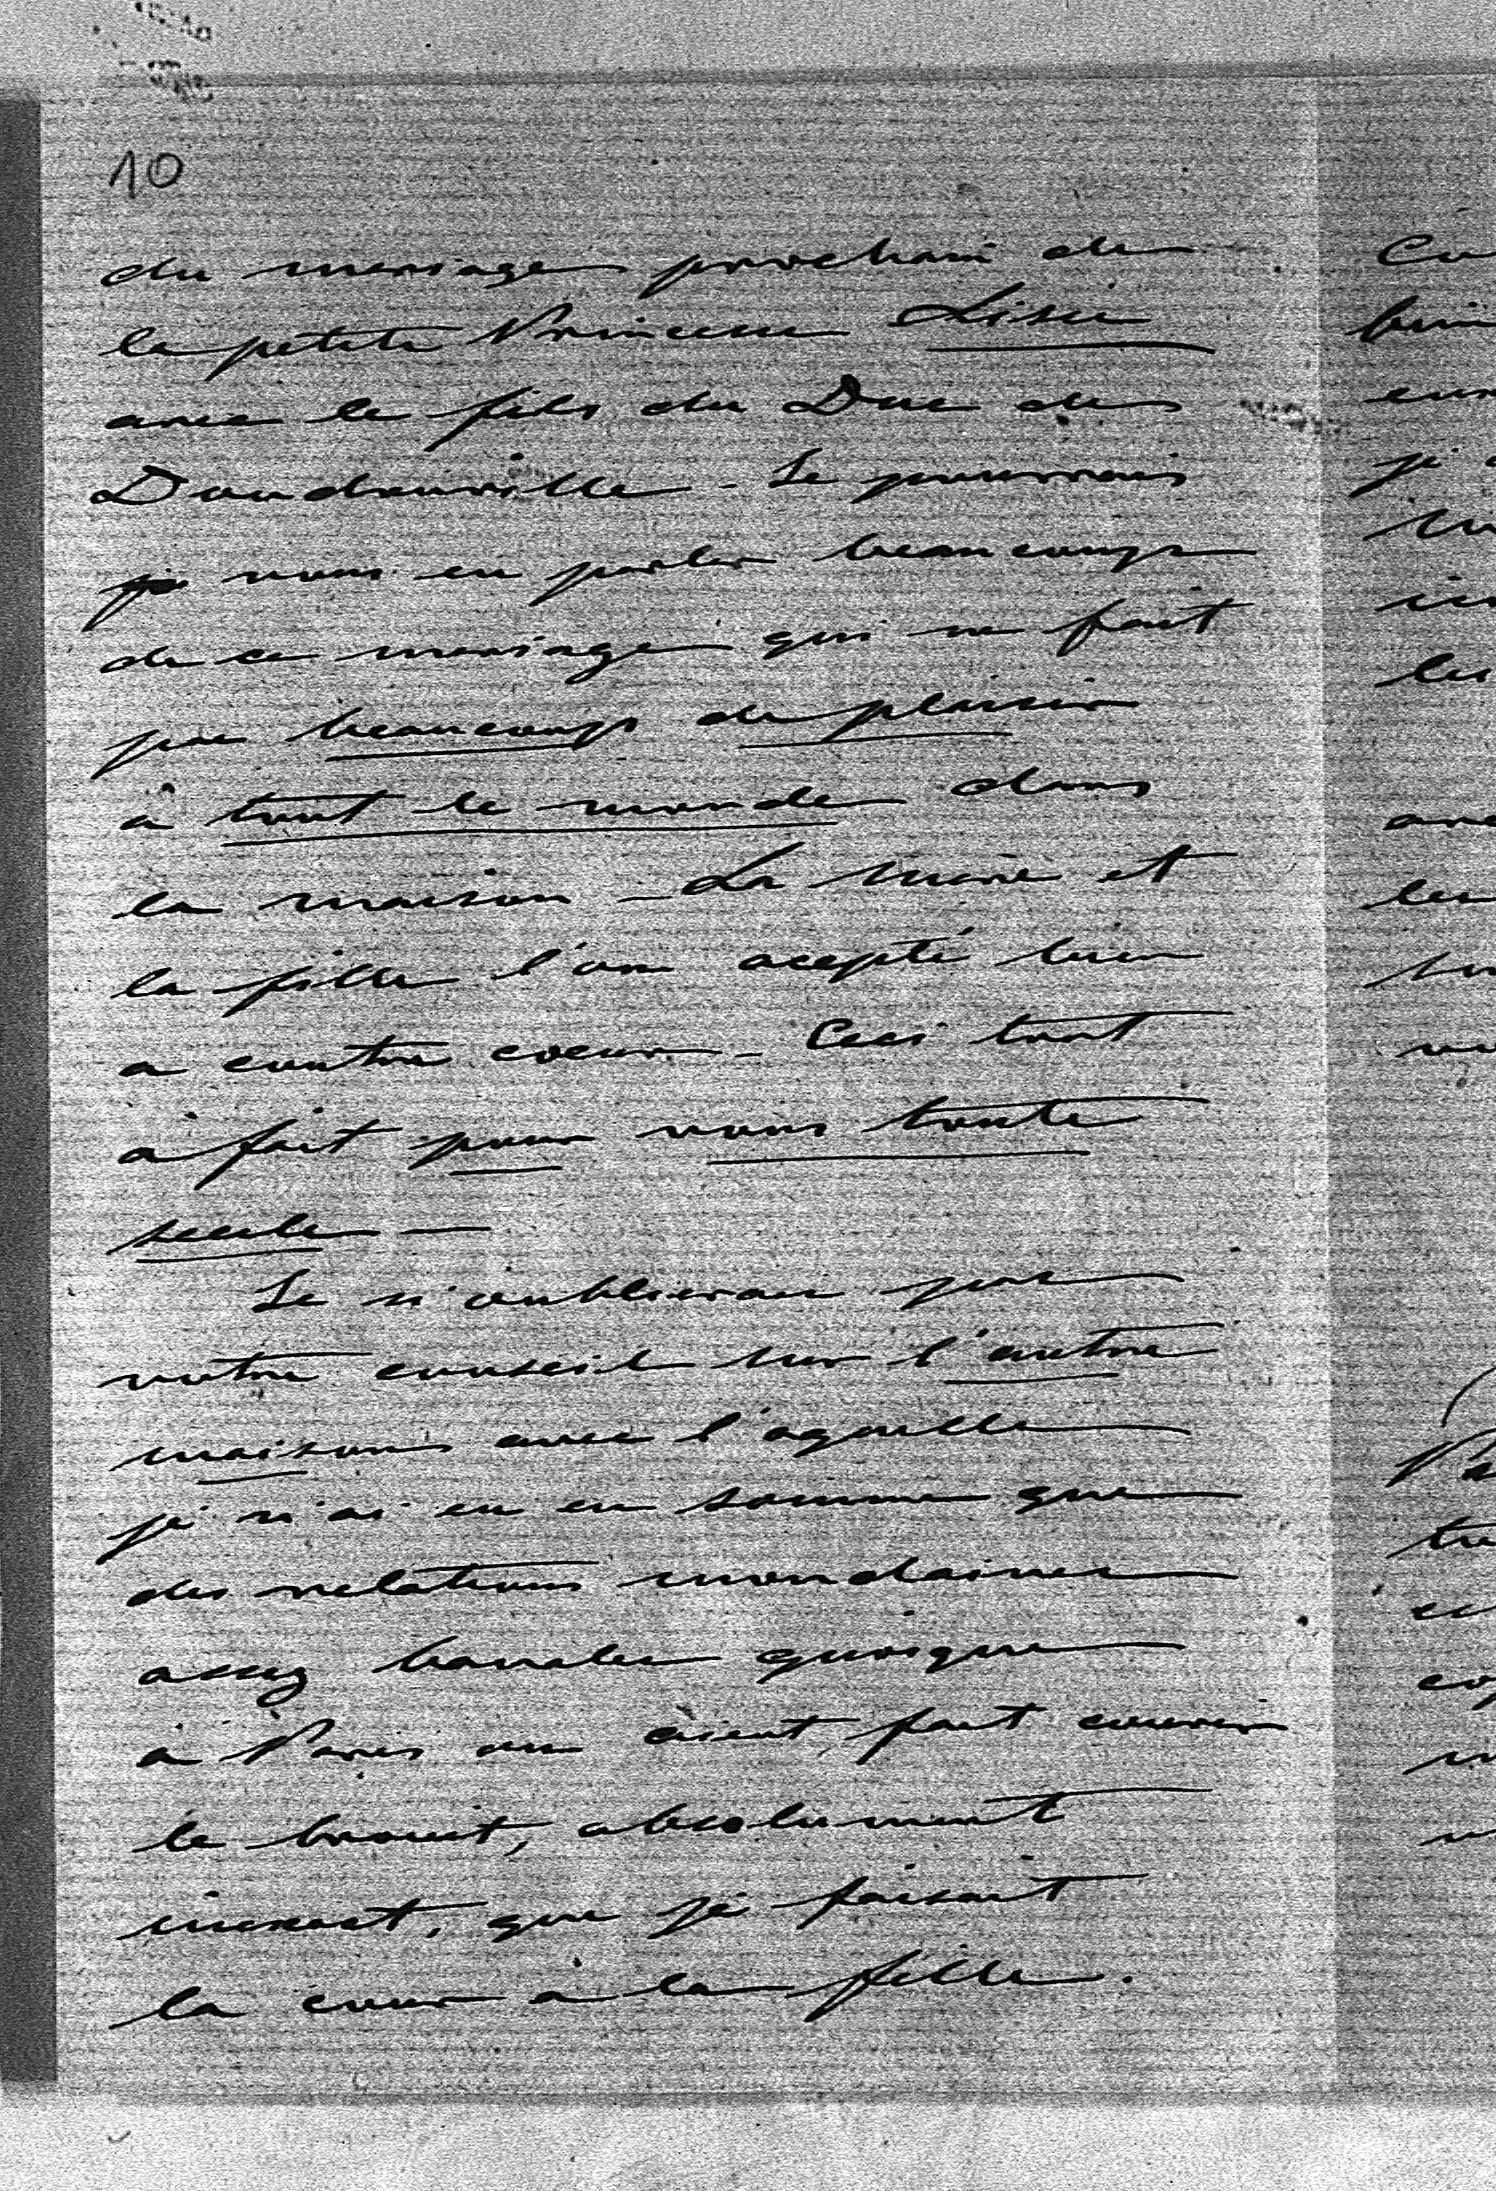 10
du mariage prochain de
la petite Princesse Lisie
avec le fils du Duc de
Doudeauville - Je pourrais
vous en parler beaucoup
de ce mariage qui ne fait
pas beaucoup de plaisir
à tout le monde dans
la maison - La mère et
la fille l'on accepté bien
a contre coeur - Ceci tout
à fait pour vous toute
seule -
Je n'oublierais pas
votre conseil sur l'autre
maison avec l'aquelle
je n'ai eu en somme que
des relations mondaines
assez banales quoique
à Paris on aient fait courir
le brouit, absolument
inexact, que je faisait
la cour à la fille.